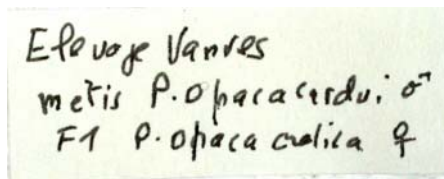 Elevage Vanves
metis P. Opaca cardui ♂
F1 P. opaca cretica ♀